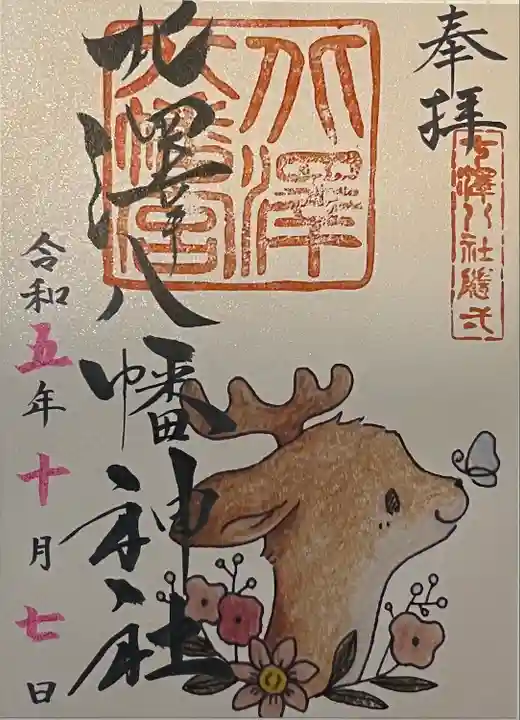 奉拝
七澤八社隨弌
北澤
八幡宮
北澤八幡神社
令和五年十月七日